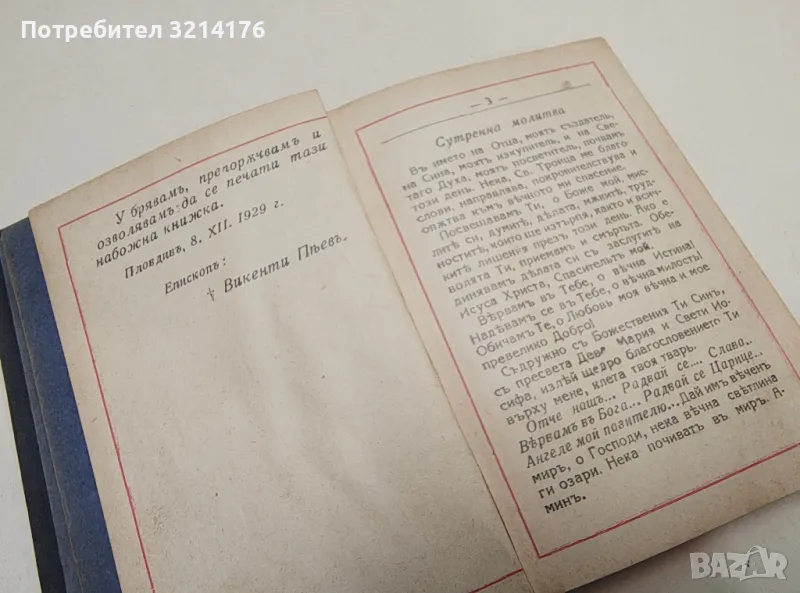 Потребител 3214176
У брявамъ, препорѫчвамъ и
озволявамъ: да се печати тази
набожна книжка.
Пловдивъ, 8. XII. 1929 г.
Епископъ:
† Викенти Пѣевъ.
— 3 —
Сутренна молитва
Въ името на Отца, моятъ създатель,
на Сина, моятъ изкупитель, и на Све-
таго Духа, моятъ посветитель, почвамъ
този день. Нека Св. Троица ме благо
слови, направлява, покровителствува и
опжтва къмъ вѣчното ми спасение.
Посвещавамъ Ти, о Боже мой, мис-
литѣ си, думитѣ, дѣлата, мжкитѣ, труд-
ноститѣ, които ще изтърпя, както и всич-
китѣ лишения презъ този день. Ако е
волята Ти, приемамъ и смъртьта. Обе-
динявамъ дѣлата си съ заслугитѣ на
Исуса Христа, Спасительтъ мой.
Вѣрвамъ въ Тебе, о вѣчна Истина!
Надѣвамъ се въ Тебе, о вѣчна милость!
Обичамъ Те, о Любовь моя вѣчна и мое
превелико Добро!
Съдружно съ Божествения Ти Синъ,
съ пресвета Дева Мария и Свети Ио-
сифа, излѣй щедро благословението Ти
върху мене, клета твоя тварь.
Отче нашъ... Радвай се.... Слава...
Вѣрвамъ въ Бога... Радвай се Царице...
Ангеле мой пазителю... Дай имъ вѣченъ
миръ, о Господи, нека вѣчна свѣтлина
ги озари. Нека почиватъ въ миръ. А-
минъ.
BAZAR
bg